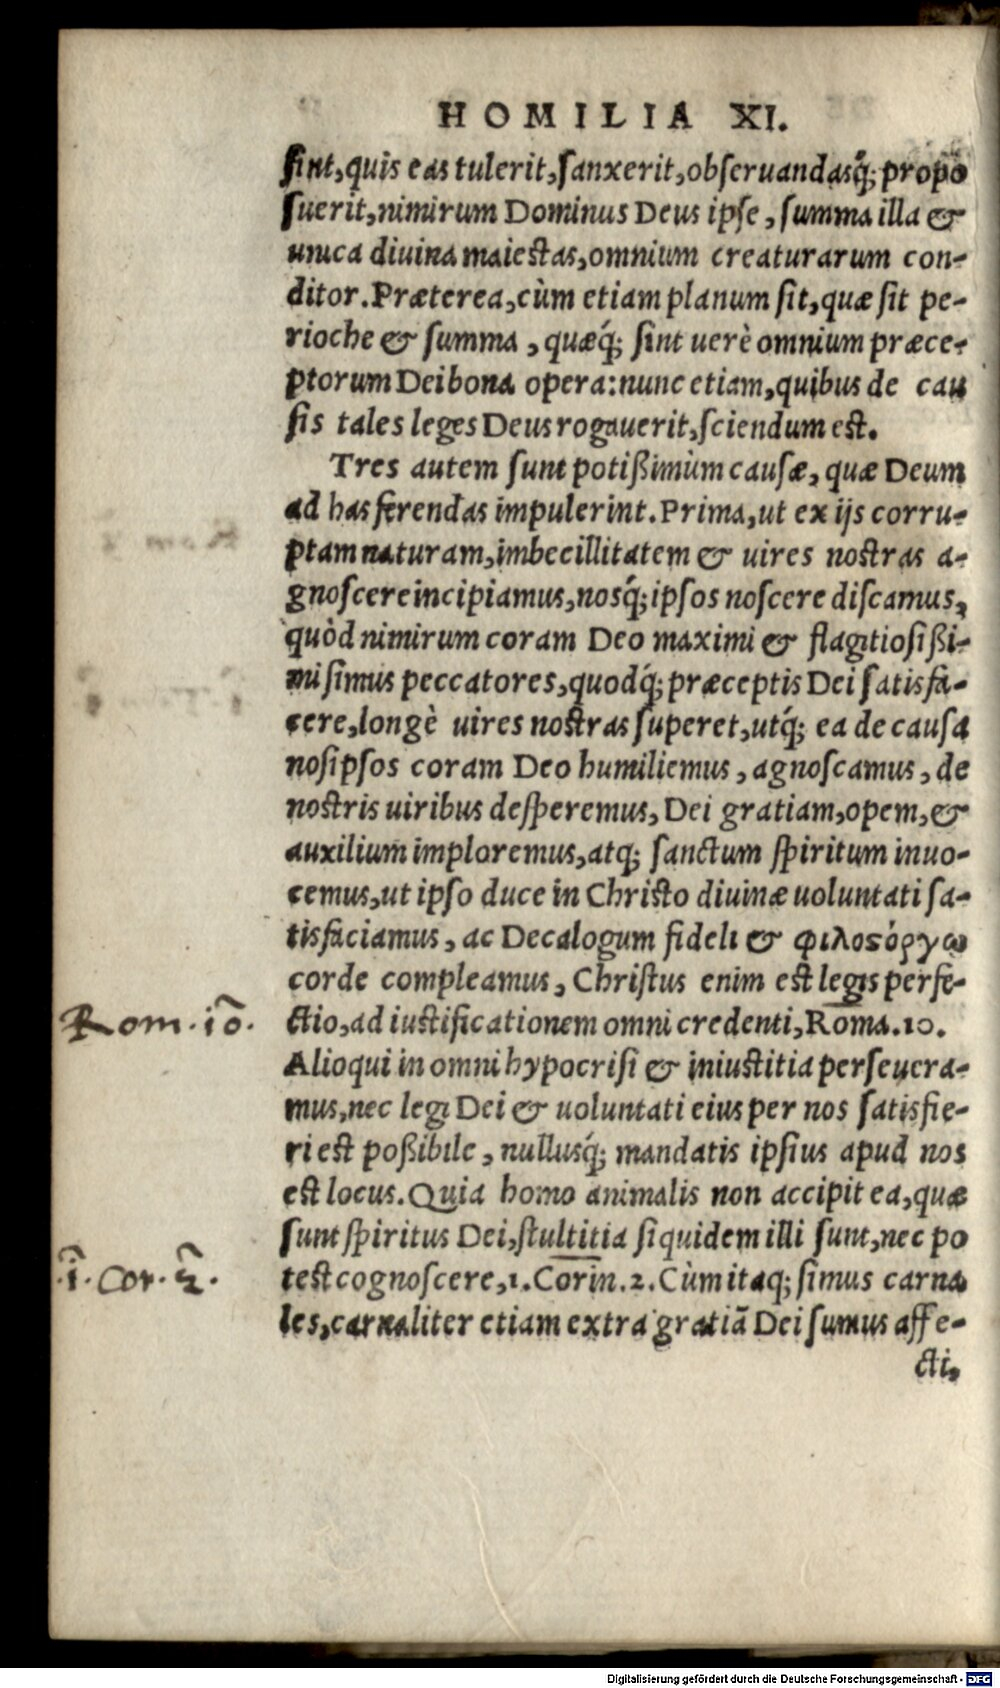 HOMILIA XI.
ſint, quis eas tulerit, ſanxerit, obſeruandasq́; propo
ſuerit, nimirum Dominus Deus ipſe, ſumma illa &
unica diuina maieſtas, omnium creaturarum con-
ditor. Præterea, cùm etiam planum ſit, quæ ſit pe-
rioche & ſumma, quæq́; ſint uerè omnium præce-
ptorum Dei bona opera: nunc etiam, quibus de cau
ſis tales leges Deus rogauerit, ſciendum eſt.
Tres autem ſunt potißimùm cauſæ, quæ Deum
ad has ferendas impulerint. Prima, ut ex ijs corru-
ptam naturam, imbecillitatem & uires noſtras a-
gnoſcere incipiamus, nosq́; ipſos noſcere diſcamus,
quòd nimirum coram Deo maximi & flagitioſißi-
mi ſimus peccatores, quodq́; præceptis Dei ſatisfa-
cere, longè uires noſtras ſuperet, utq́; ea de cauſa
noſipſos coram Deo humiliemus, agnoſcamus, de
noſtris uiribus deſperemus, Dei gratiam, opem, &
auxilium imploremus, atq; ſanctum ſpiritum inuo-
cemus, ut ipſo duce in Chriſto diuinæ uoluntati ſa-
tisfaciamus, ac Decalogum fideli & φιλοϛόργω
corde compleamus, Chriſtus enim eſt legis perfe-
Rom. 10. ctio, ad iuſtificationem omni credenti, Roma. 10.
Alioqui in omni hypocriſi & iniuſtitia perſeuera-
mus, nec legi Dei & uoluntati eius per nos ſatisfie-
ri eſt poßibile, nullusq́; mandatis ipſius apud nos
eſt locus. Quia homo animalis non accipit ea, quæ
ſunt ſpiritus Dei, ſtultitia ſiquidem illi ſunt, nec po
1. Cor. 2. teſt cognoſcere, 1. Corin. 2. Cùm itaq; ſimus carna
les, carnaliter etiam extra gratiã Dei ſumus affe-
cti,
Digitalisierung gefördert durch die Deutsche Forschungsgemeinschaft - DFG